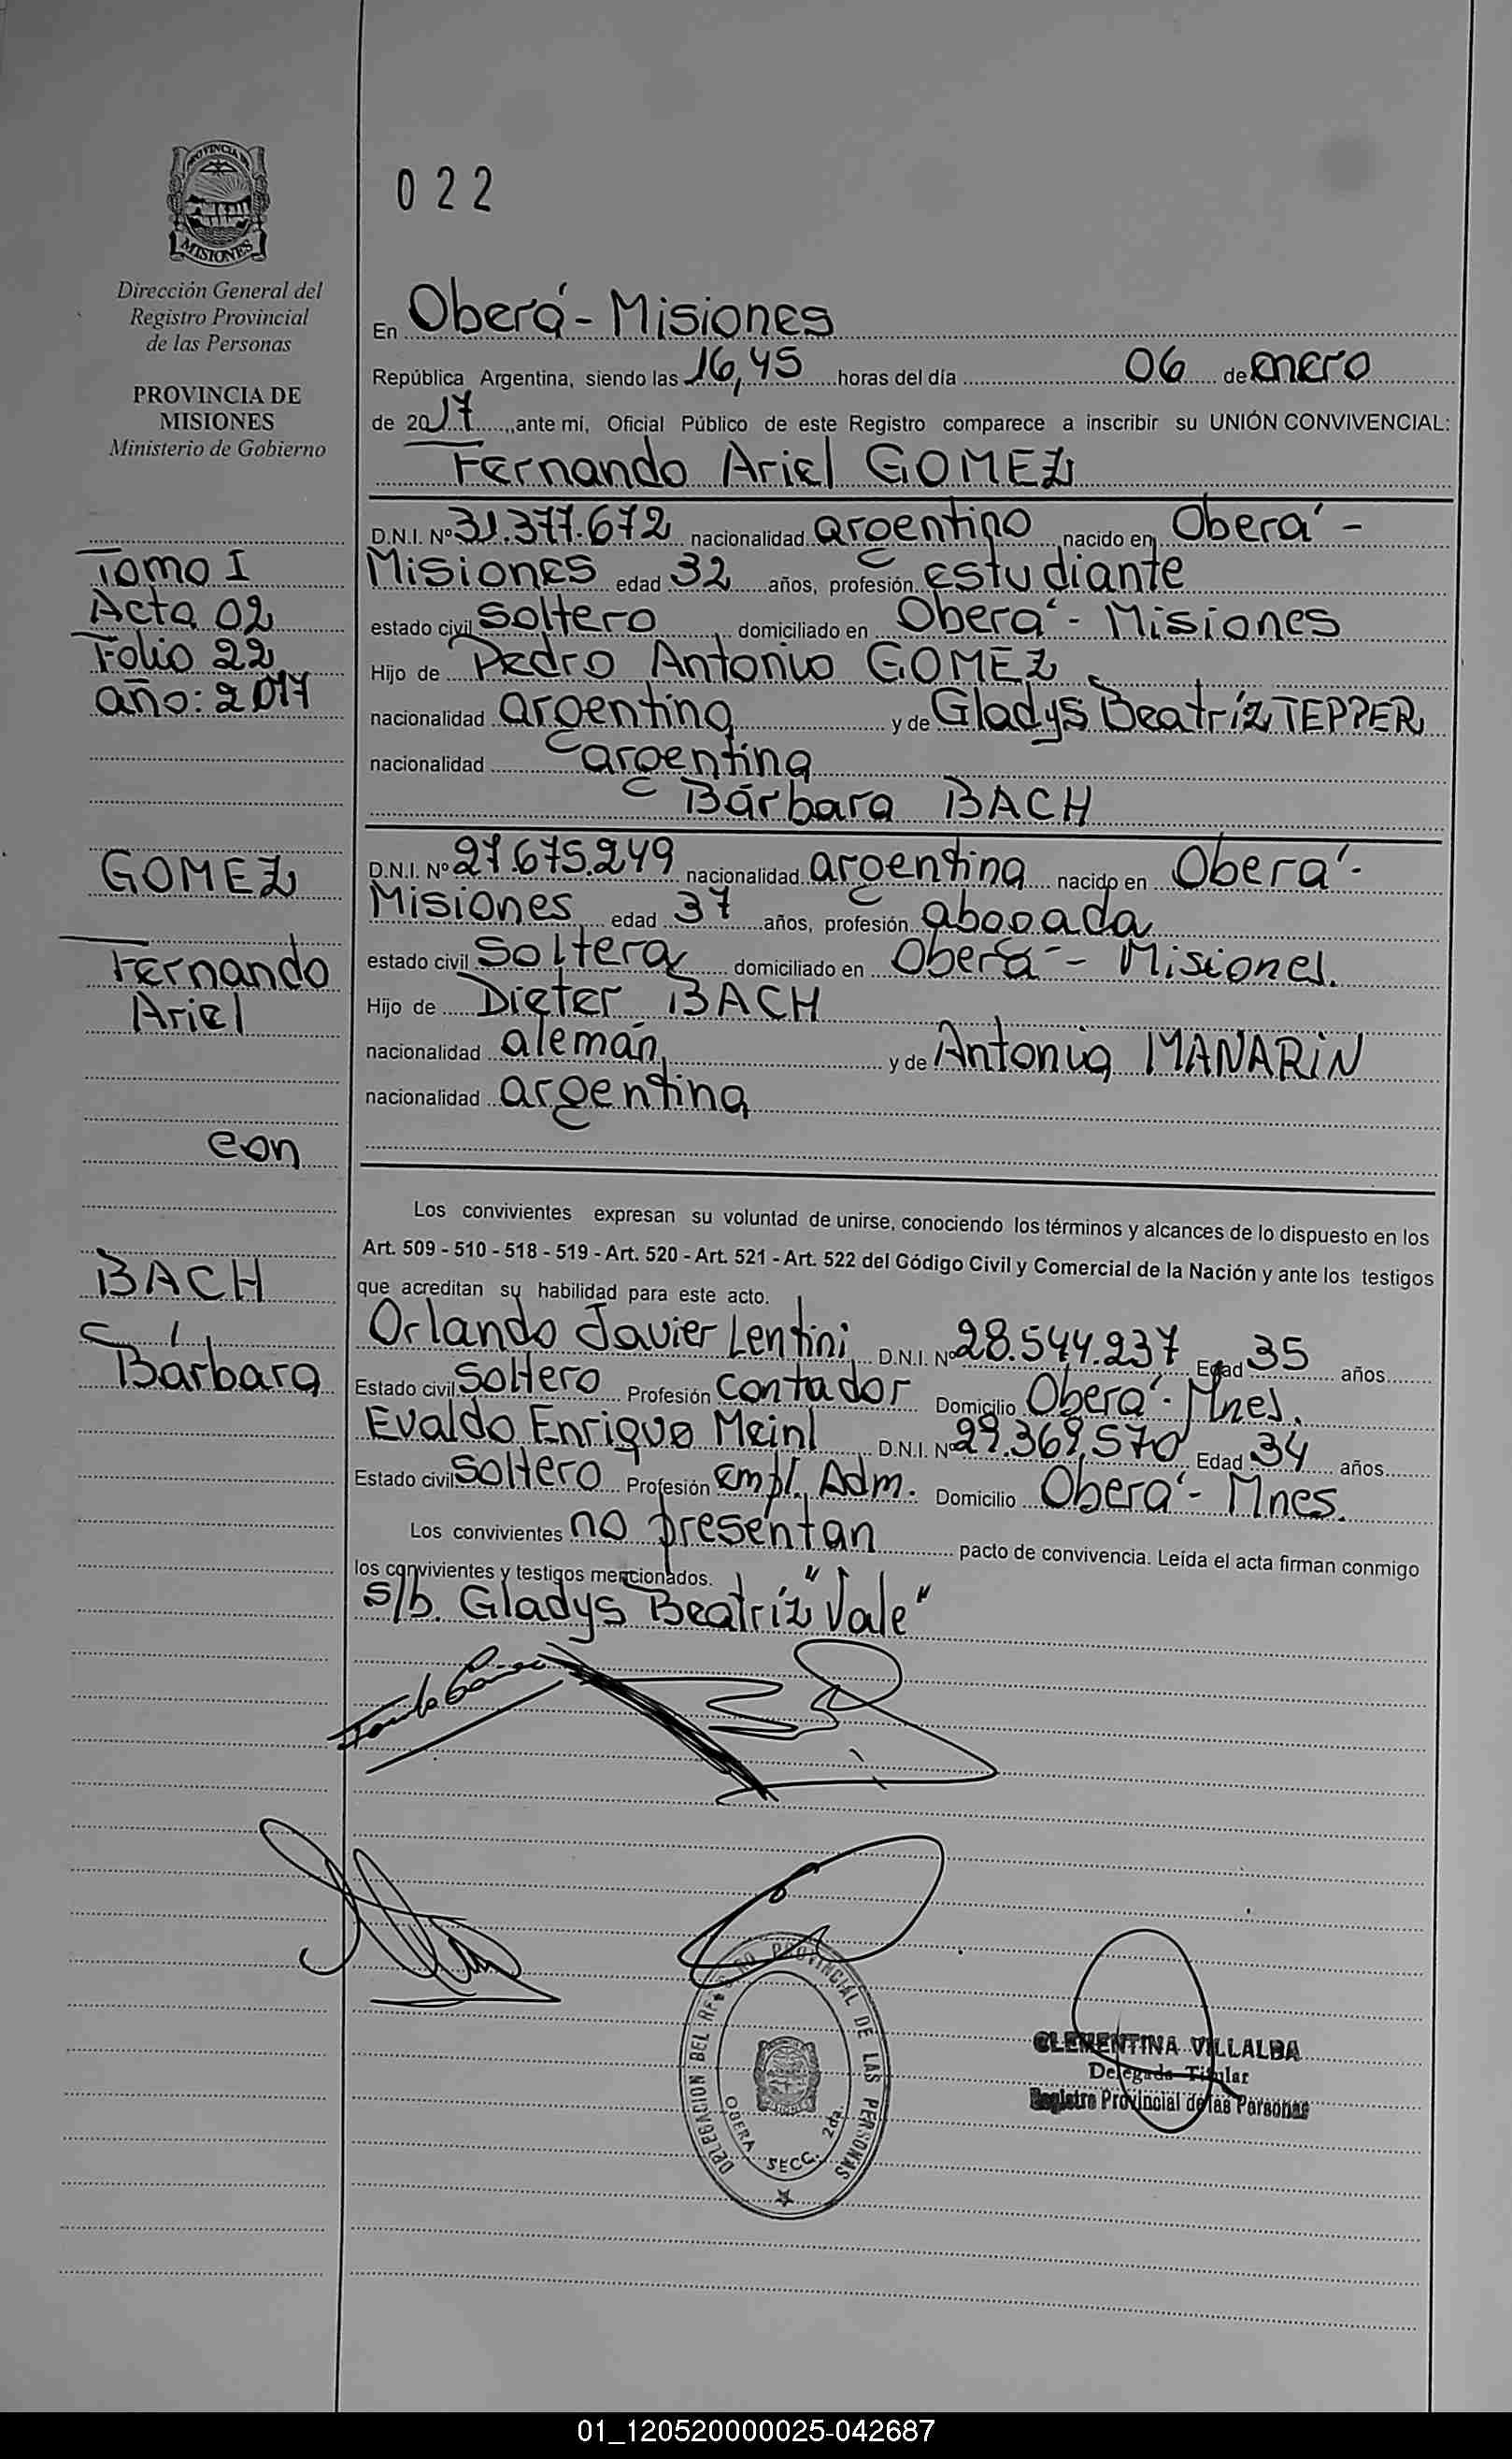 PROVINCIA DE
MISIONES
Dirección General del
Registro Provincial
de las Personas
PROVINCIA DE
MISIONES
Ministerio de Gobierno
Tomo I
Acta 02
Folio 22
año: 2017
GOMEZ
Fernando
Ariel
con
BACH
Bárbara
022
En Oberá - Misiones
República Argentina, siendo las 16,45 horas del día 06 de enero
de 2017, ante mí, Oficial Público de este Registro comparece a inscribir su UNIÓN CONVIVENCIAL:
Fernando Ariel GOMEZ
D.N.I. Nº 31.377.672 nacionalidad argentino nacido en Oberá -
Misiones edad 32 años, profesión estudiante
estado civil soltero domiciliado en Oberá - Misiones
Hijo de Pedro Antonio GOMEZ
nacionalidad argentina y de Gladys Beatríz TEPPER
nacionalidad argentina
Bárbara BACH
D.N.I. Nº 27.675.249 nacionalidad argentina nacido en Oberá -
Misiones edad 37 años, profesión abogada
estado civil soltera domiciliado en Oberá - Misiones.
Hijo de Dieter BACH
nacionalidad alemán y de Antonia MANARIN
nacionalidad argentina
Los convivientes expresan su voluntad de unirse, conociendo los términos y alcances de lo dispuesto en los
Art. 509 - 510 - 518 - 519 - Art. 520 - Art. 521 - Art. 522 del Código Civil y Comercial de la Nación y ante los testigos
que acreditan su habilidad para este acto.
Orlando Javier Lentini D.N.I. Nº 28.544.237 Edad 35 años
Estado civil soltero Profesión contador Domicilio Oberá - Mnes.
Evaldo Enrique Meinl D.N.I. Nº 29.369.570 Edad 34 años
Estado civil soltero Profesión empl. Adm. Domicilio Oberá - Mnes.
Los convivientes no presentan pacto de convivencia. Leída el acta firman conmigo
los convivientes y testigos mencionados.
s/b. Gladys Beatríz "Vale"
DELEGACION DEL REGISTRO PROVINCIAL DE LAS PERSONAS
OBERA SECC. 2da.
CLEMENTINA VILLALBA
Delegada Titular
Registro Provincial de las Personas
01_120520000025-042687